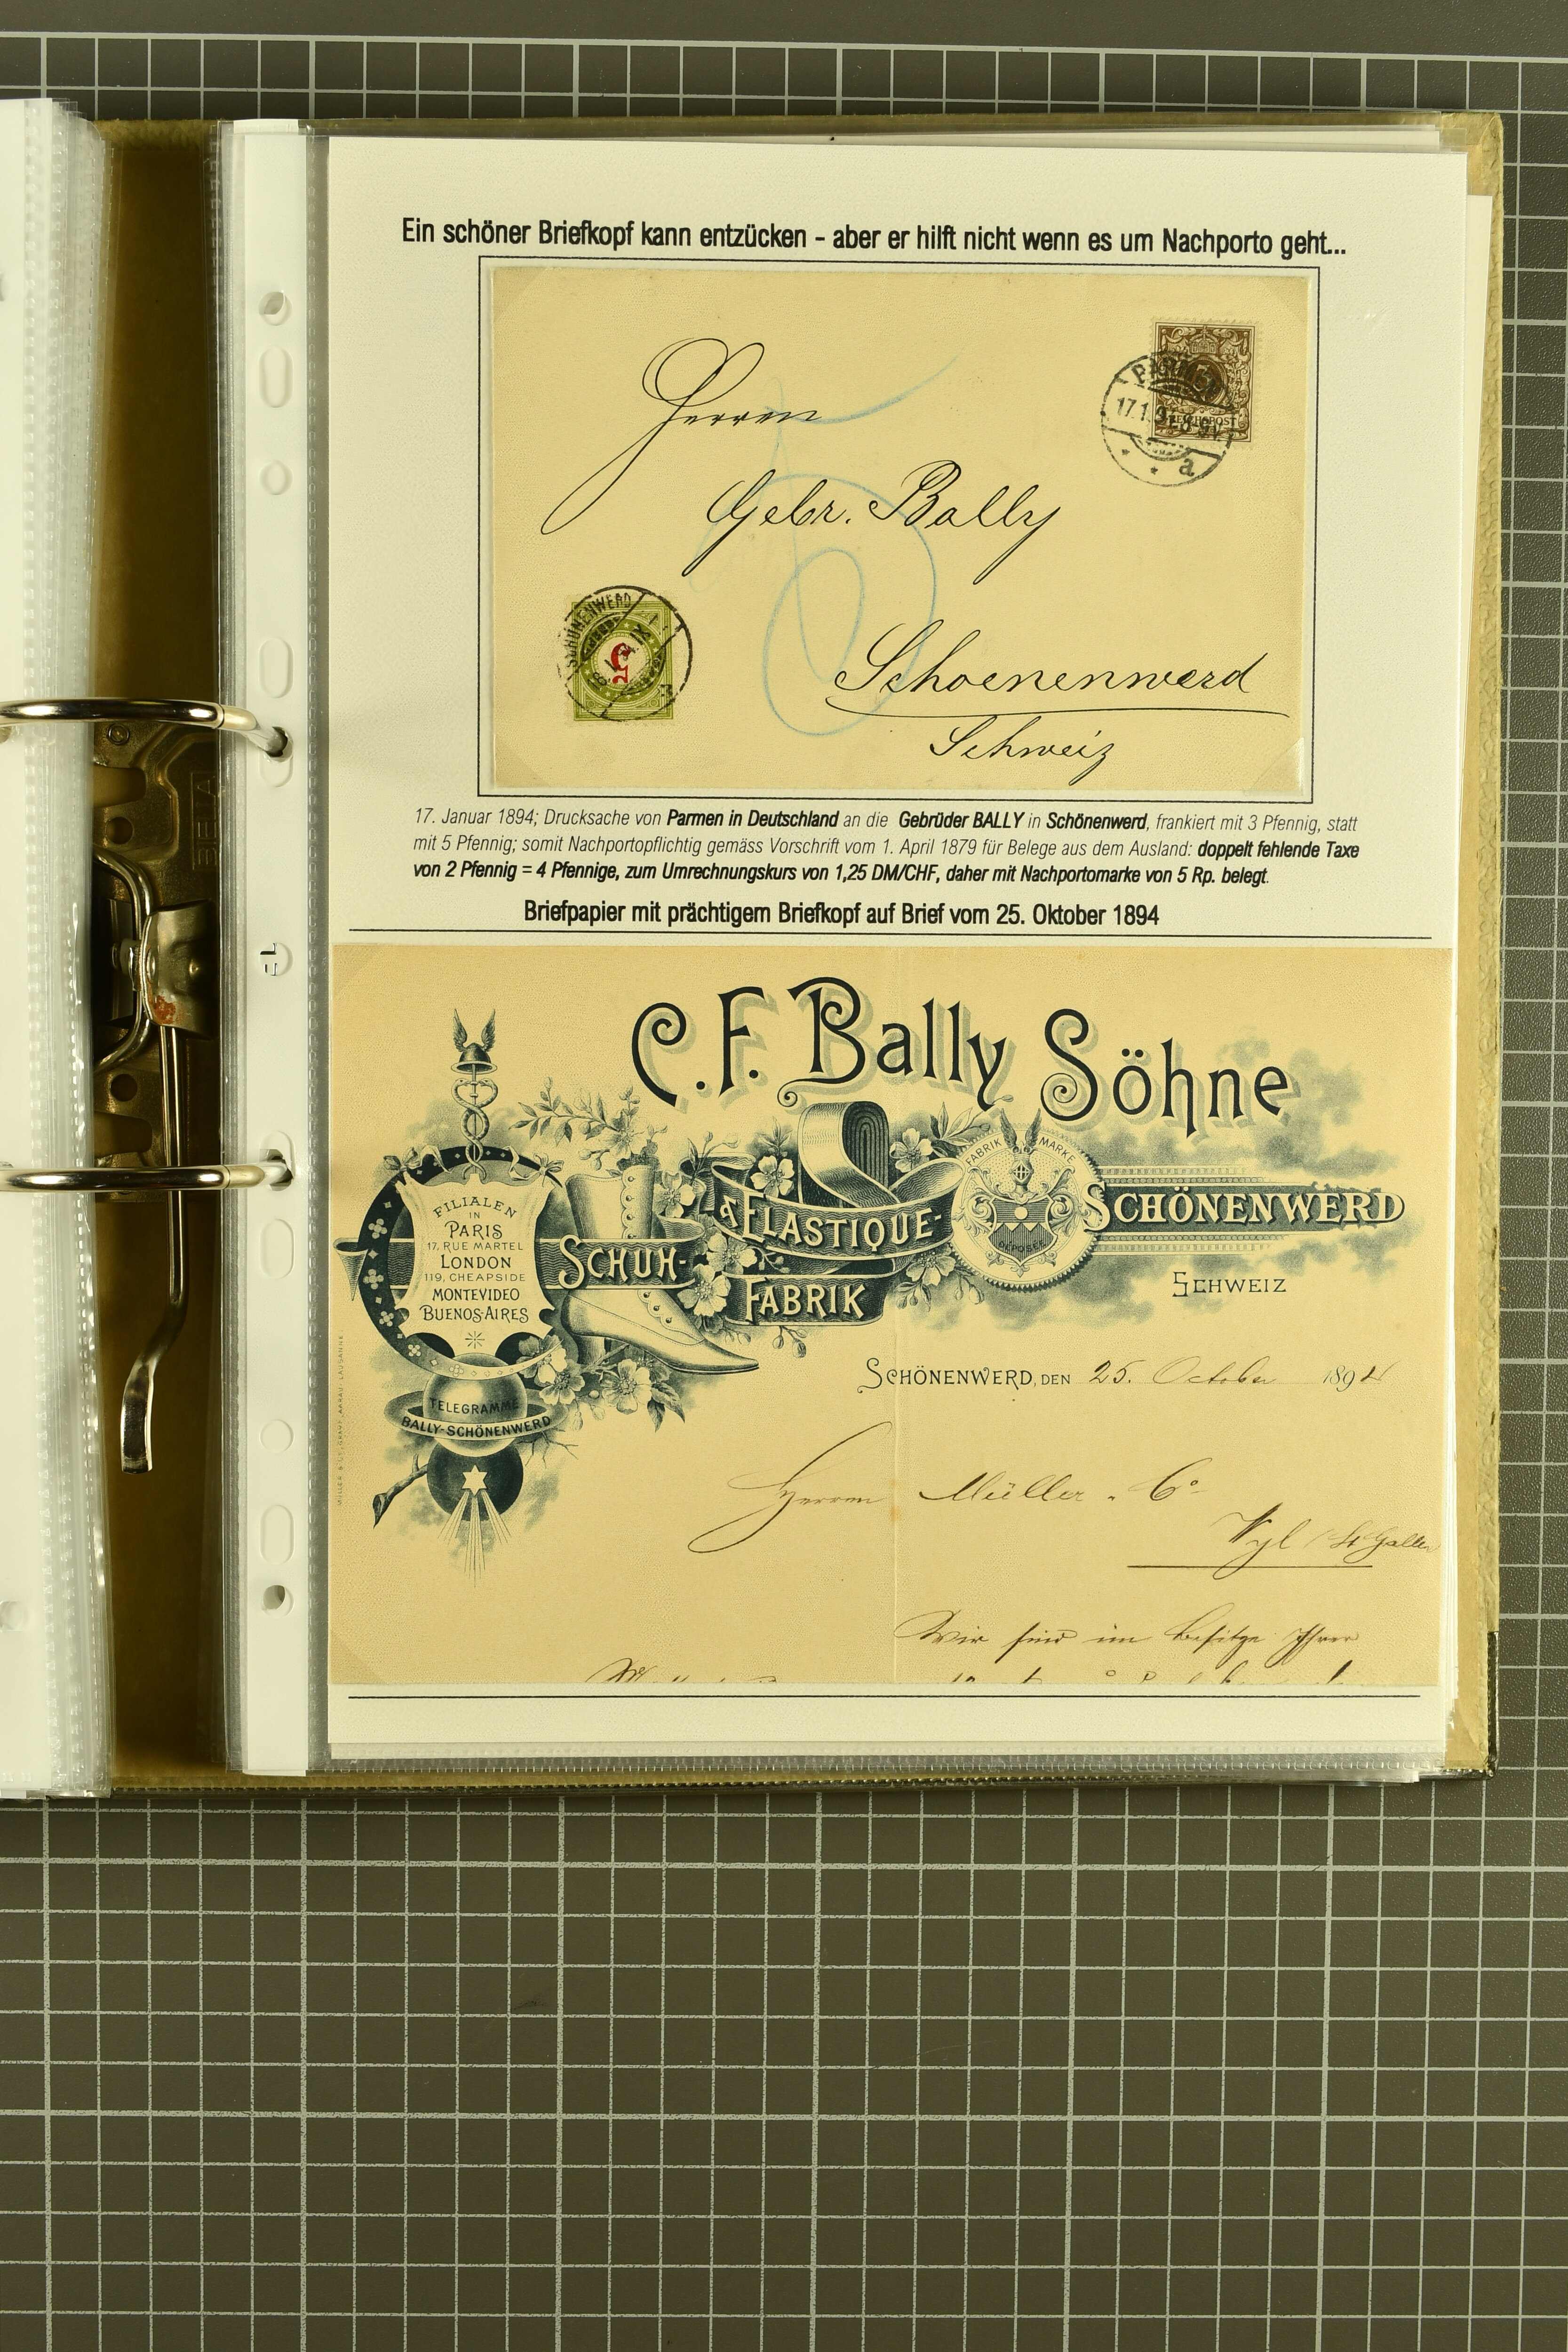 Ein schöner Briefkopf kann entzücken - aber er hilft nicht wenn es um Nachporto geht...
17.1.94
REICHSPOST
a
Herren
Gebr. Bally
Schoenenwerd
Schweiz
SCHÖNENWERD
5
17. Januar 1894; Drucksache von Parmen in Deutschland an die Gebrüder BALLY in Schönenwerd, frankiert mit 3 Pfennig, statt
mit 5 Pfennig; somit Nachportopflichtig gemäss Vorschrift vom 1. April 1879 für Belege aus dem Ausland: doppelt fehlende Taxe
von 2 Pfennig = 4 Pfennige, zum Umrechnungskurs von 1,25 DM/CHF, daher mit Nachportomarke von 5 Rp. belegt.
Briefpapier mit prächtigem Briefkopf auf Brief vom 25. Oktober 1894
C.F. Bally Söhne
FILIALEN
IN
PARIS
17, RUE MARTEL
LONDON
119, CHEAPSIDE
MONTEVIDEO
BUENOS-AIRES
SCHUH-
& ELASTIQUE-
FABRIK
FABRIK MARKE
DEPOSÉE
SCHÖNENWERD
SCHWEIZ
TELEGRAMME
BALLY-SCHÖNENWERD
SCHÖNENWERD, DEN 25. October 1894
Herren Müller & Co
Wyl St Gallen
Wir sind im Besitze Ihrer